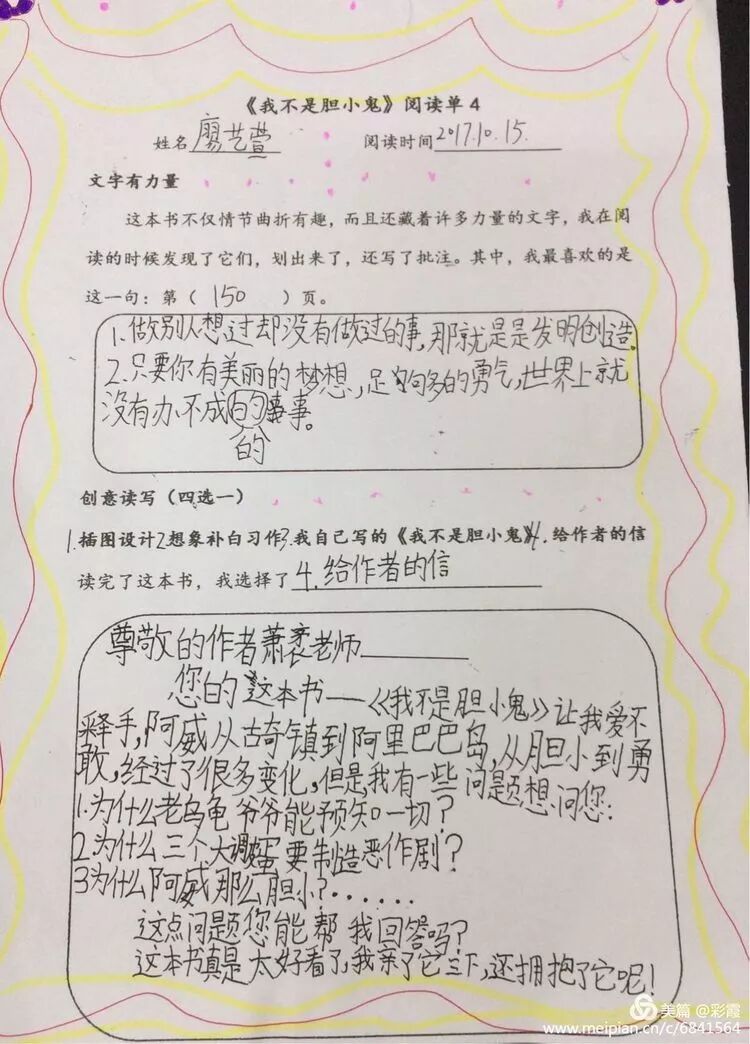 《我不是胆小鬼》阅读单4
姓名廖艺萱 阅读时间2017.10.15.
文字有力量
这本书不仅情节曲折有趣，而且还藏着许多力量的文字，我在阅
读的时候发现了它们，划出来了，还写了批注。其中，我最喜欢的是
这一句：第（150）页。
1.做别人想过却没有做过的事,那就是是发明创造。
2.只要你有美丽的梦想,足够多的勇气,世界上就
没有办不成的事。
的
创意读写（四选一）
1.插图设计2.想象补白习作3.我自己写的《我不是胆小鬼》4.给作者的信
读完了这本书，我选择了4.给作者的信
尊敬的作者萧袤老师
您的这本书——《我不是胆小鬼》让我爱不
释手,阿威从古奇镇到阿里巴巴岛,从胆小到勇
敢,经过了很多变化,但是我有一些问题想问您:
1.为什么老乌龟爷爷能预知一切?
2.为什么三个大调蛋要制造恶作剧?
3为什么阿威那么胆小?······
这点问题您能帮我回答吗?
这本书真是太好看了,我亲了它三下,还拥抱了它呢!
美篇@彩霞
www.meipian.cn/c/6841564